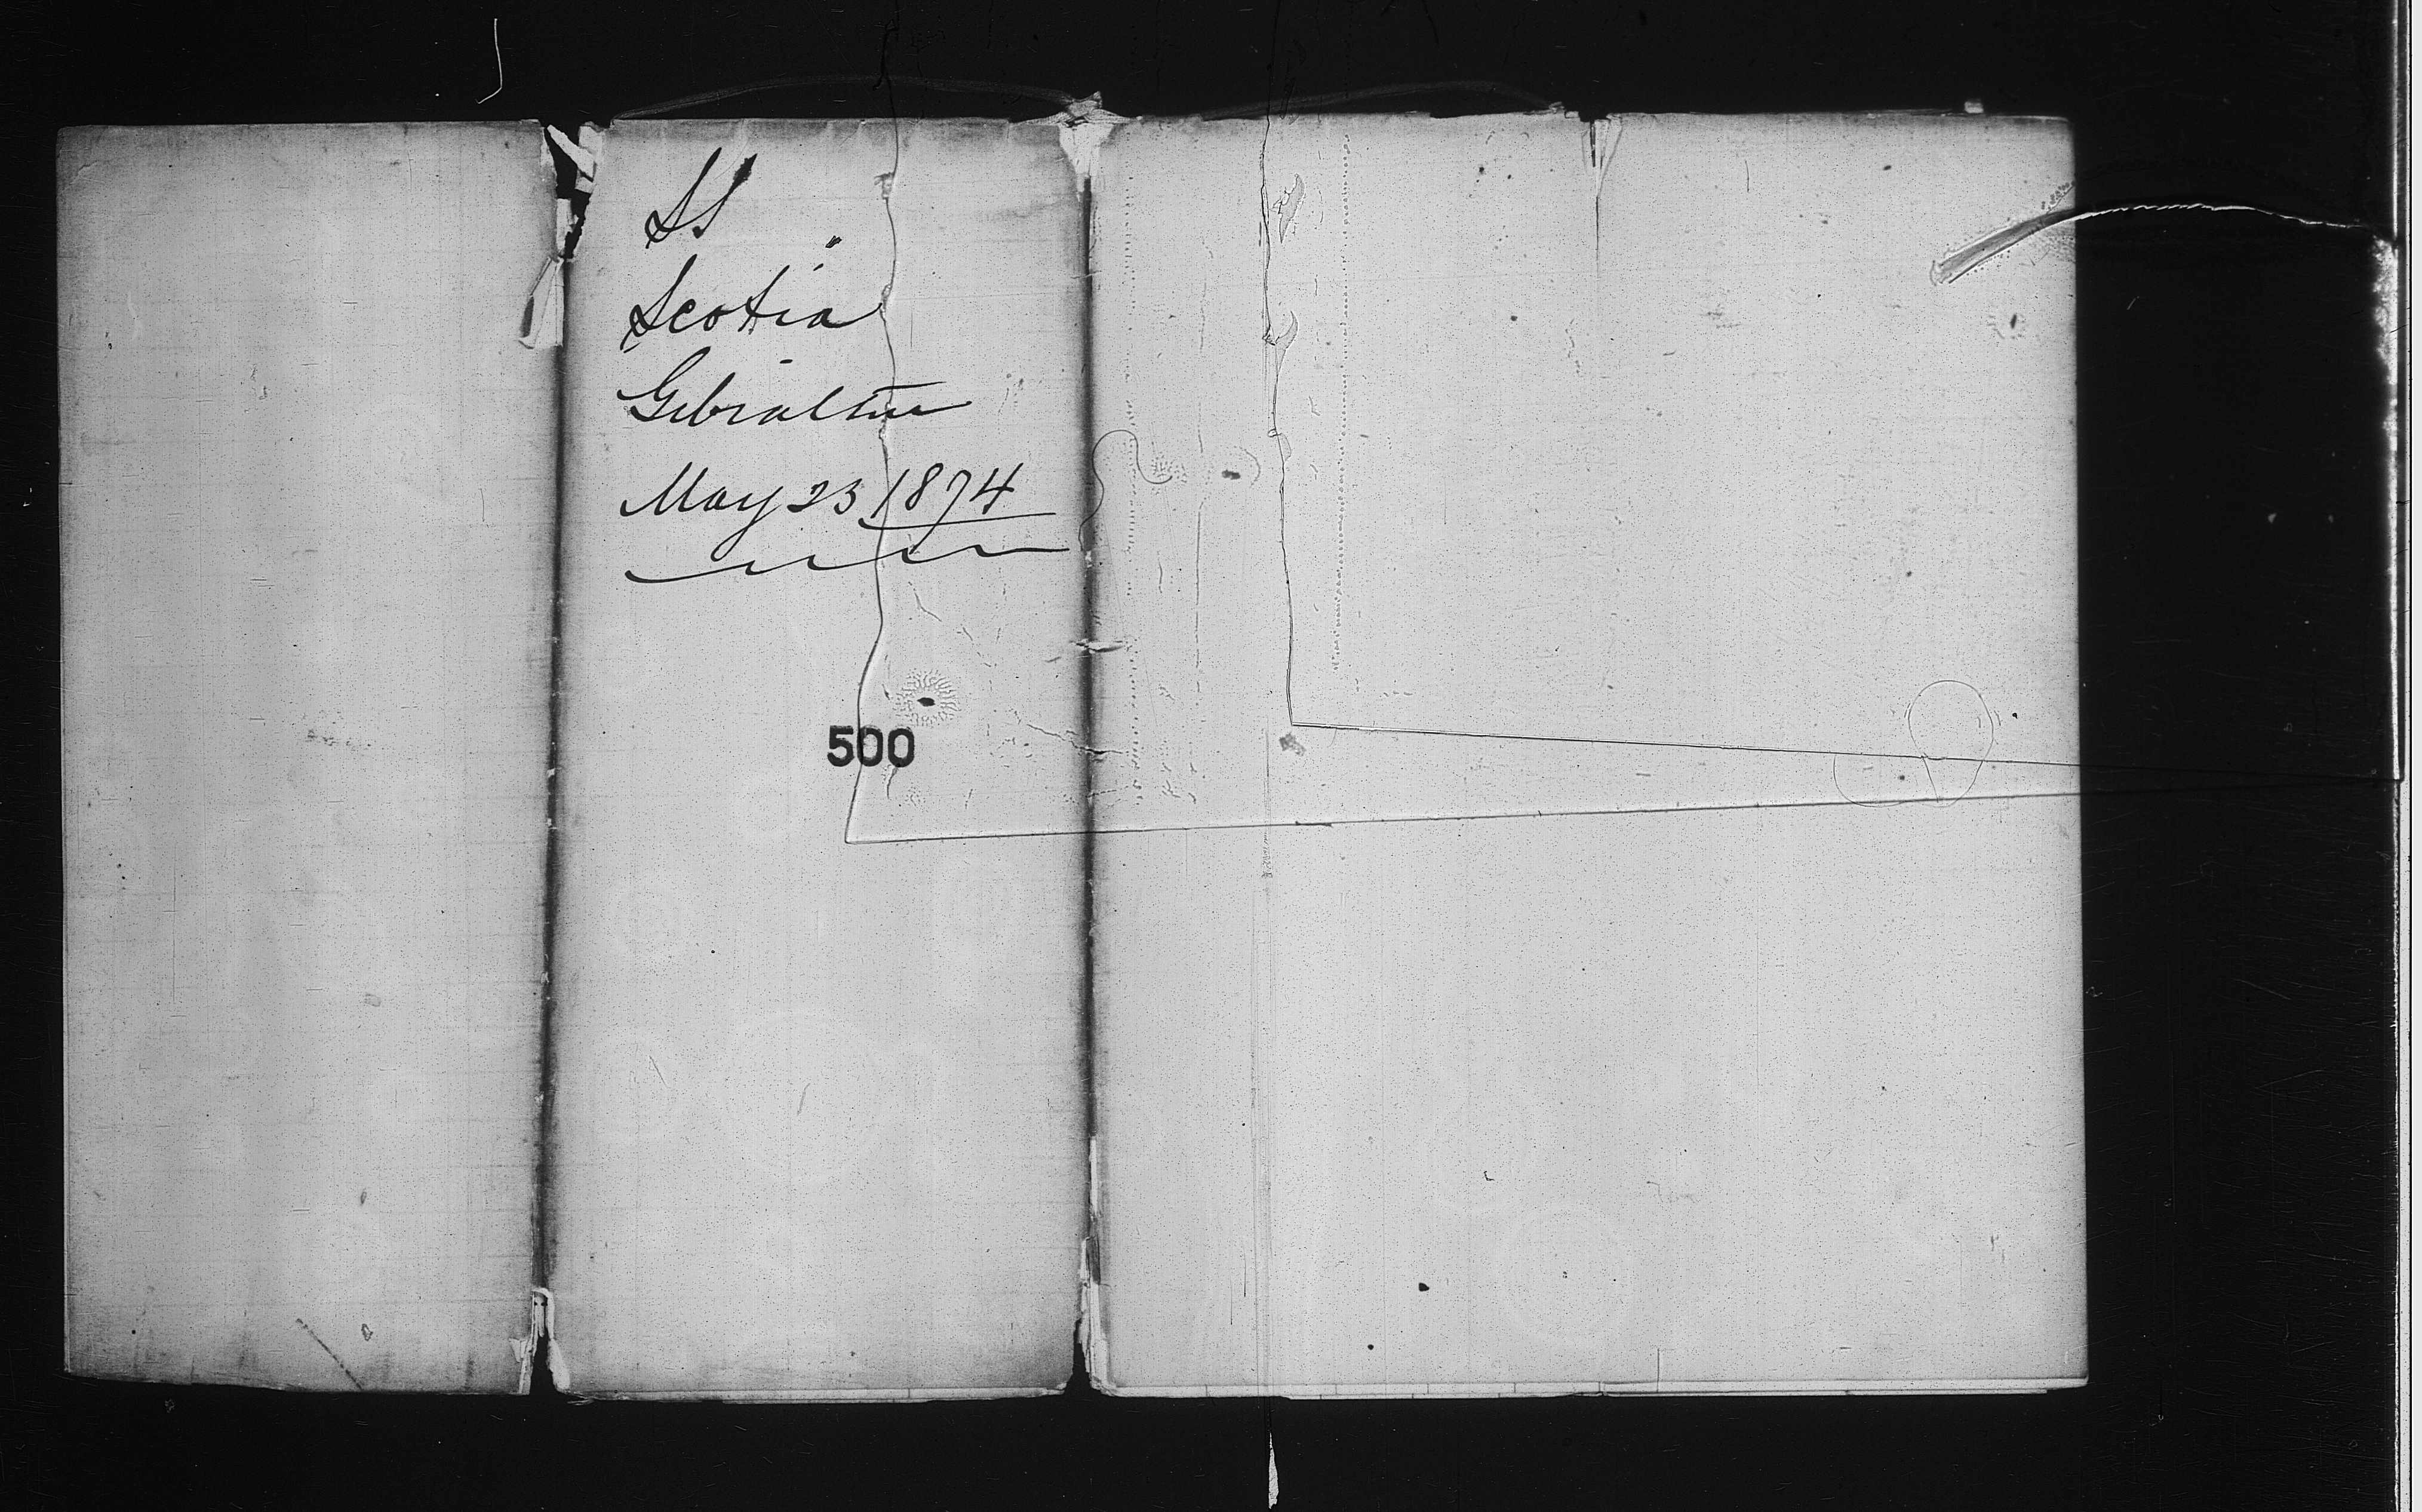 SS
Scotia
Gibraltar
May 23 1874
500